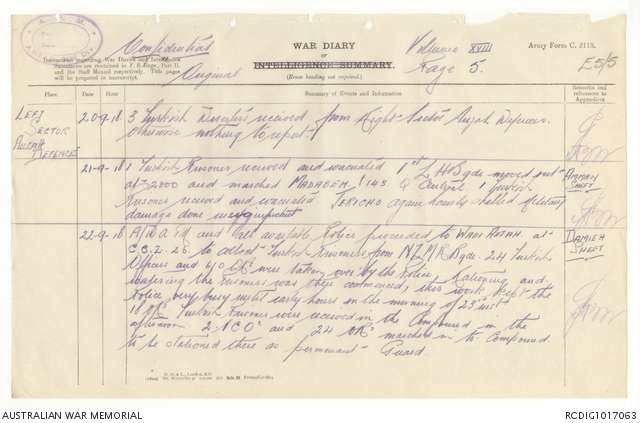 Confidential
Original
WAR DIARY
OF
INTELLIGENCE SUMMARY.
(Erase heading not required.)
Volume XVIII
Page 5.
Army Form C. 2118.
E5/5
Instructions regarding War Diaries and Intelligence
Summaries are contained in F.S. Regs., Part II.
and the Staff Manual respectively. Title pages
will be prepared in manuscript.
Place
Date
Hour
Summary of Events and Information
Remarks and
references to
Appendices
LEFT
SECTOR
DEFENCES
20-9-18 3 Turkish Deserters received from Right Sector Defences.
otherwise nothing to report
21-9-18 1 Turkish Prisoner received and evacuated 1st L H Bgde moved out
at 2000 and marched MADAGEH 143 Q Central 1 Turkish
Prisoner received and evacuated JERICHO again heavily shelled
damage done insignificant
AMMAN
SHEET
22-9-18 and all available Police proceeded to WADI at
C.C.Z. 26. to collect Turkish Prisoners from N Z M R Bgde. 24 Turkish
Officers and 40 ORs were taken over by the Police Rationing and
the Prisoners was then commenced, this work kept the
Police very busy night early hours on the morning of 23rd inst
Turkish Prisoners were received in the Compound in the
afternoon 2 NCOs and 24 ORs marched in to Compound
to be stationed there as permanent Guard.
DAMIEH
SHEET
AUSTRALIAN WAR MEMORIAL
RCDIG1017063